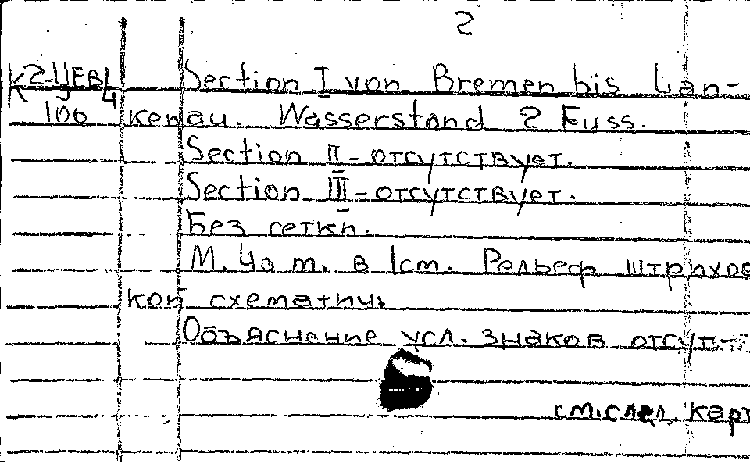 2
К2-ЦЕВ Section I von Bremen bis Lan-
4
106 kenau. Wasserstand 2 Fuss.
Section II - отсутствует.
Section III - отсутствует.
Без сетки.
М. 40 m. в 1 cm. Рельеф штрихов
кой схематич.
Объяснение усл. знаков отсут
см. след. карт